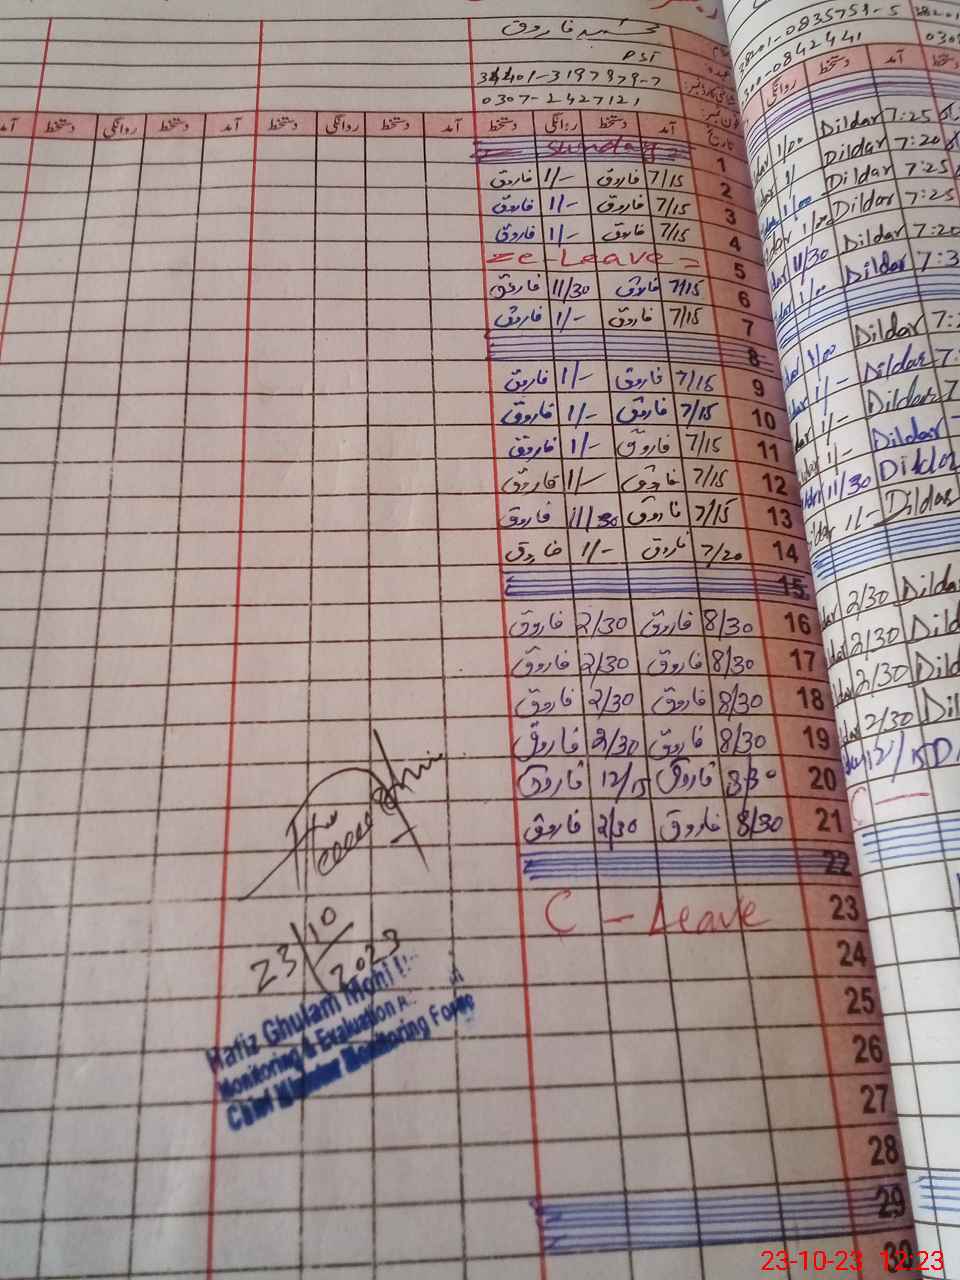 محمد فاروق
PST
34401-3197979-7
0307-2427121
38201-0835759-5
300-0842441
آمد دستخط روانگی دستخط آمد دستخط روانگی دستخط آمد
تاریخ
Sunday 1
7/15 فاروق 1/- فاروق 2
7/15 فاروق 1/- فاروق 3
7/15 فاروق 1/- فاروق 4
= e-Leave = 5
7/15 فاروق 11/30 فاروق 6
7/15 فاروق 1/- فاروق 7
8
7/15 فاروق 1/- فاروق 9
7/15 فاروق 1/- فاروق 10
7/15 فاروق 1/- فاروق 11
7/15 فاروق 1/- فاروق 12
7/15 فاروق 11/30 فاروق 13
7/20 فاروق 1/- فاروق 14
15
8/30 فاروق 2/30 فاروق 16
8/30 فاروق 2/30 فاروق 17
8/30 فاروق 2/30 فاروق 18
8/30 فاروق 2/30 فاروق 19
8 30 فاروق 12/15 فاروق 20
8/30 فاروق 2/30 فاروق 21
22
C - Leave 23
24
25
26
27
28
29
30
روانگی دستخط آمد دستخط
1/00 Dildar 7:25
Dildar 7:20
1/00 Dildar 7:25
1/00 Dildar 7:25
11/30 Dildar 7:20
1/00 Dildar
Dildar
1/- Dildar
1/- Dildar
1/- Dildar
11/30 Dildar
1/- Dildar
2/30 Dildar
2/30
2/30
2/30
12/15
23/10/2023
Hafiz Ghulam Mohi
Monitoring & Evaluation
Chief Minister Monitoring Force
23-10-23 12:23